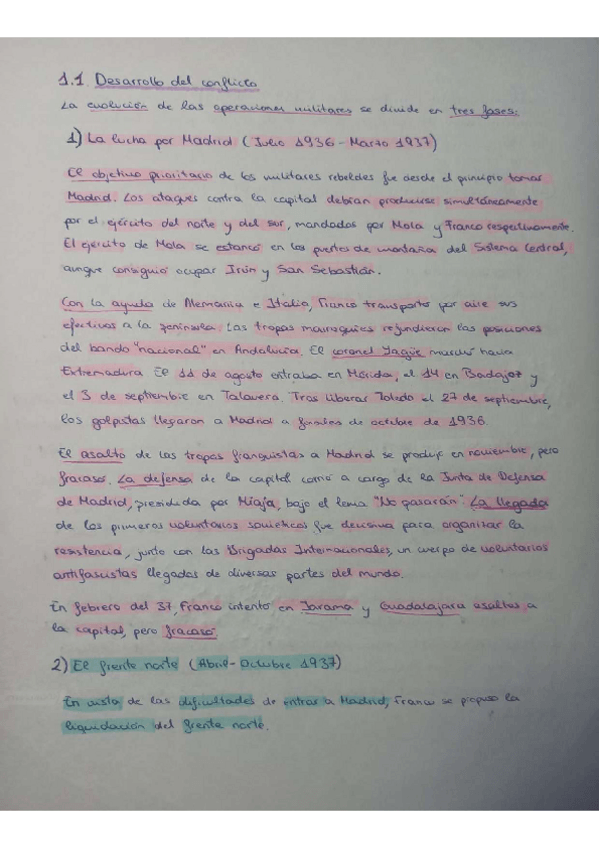 1.1 Desarrollo del conflicto
La evolución de las operaciones militares se divide en tres fases:
1) La lucha por Madrid (Julio 1936 - Marzo 1937)
El objetivo prioritario de los militares rebeldes fue desde el principio tomar
Madrid. Los ataques contra la capital debían producirse simultáneamente
por el ejército del norte y del sur, mandados por Mola y Franco respectivamente.
El ejército de Mola se estancó en los puertos de montaña del Sistema Central,
aunque consiguió ocupar Irún y San Sebastián.
Con la ayuda de Alemania e Italia, Franco transportó por aire sus
efectivos a la península. Las tropas marroquíes refundieron las posiciones
del bando "nacional" en Andalucía. El coronel Yagüe marchó hacia
Extremadura. El 11 de agosto entraba en Mérida, el 14 en Badajoz y
el 3 de septiembre en Talavera. Tras liberar Toledo el 27 de septiembre,
los golpistas llegaron a Madrid a finales de octubre de 1936.
El asalto de las tropas franquistas a Madrid se produjo en noviembre, pero
fracasó. La defensa de la capital corrió a cargo de la Junta de Defensa
de Madrid, presidida por Miaja, bajo el lema "No pasarán". La llegada
de los primeros voluntarios soviéticos fue decisiva para organizar la
resistencia, junto con las Brigadas Internacionales, un cuerpo de voluntarios
antifascistas llegados de diversas partes del mundo.
En febrero del 37, Franco intentó en Jarama y Guadalajara asaltos a
la capital, pero fracasó.
2) El frente norte (Abril - Octubre 1937)
En vista de las dificultades de entrar a Madrid, Franco se propuso la
liquidación del frente norte.